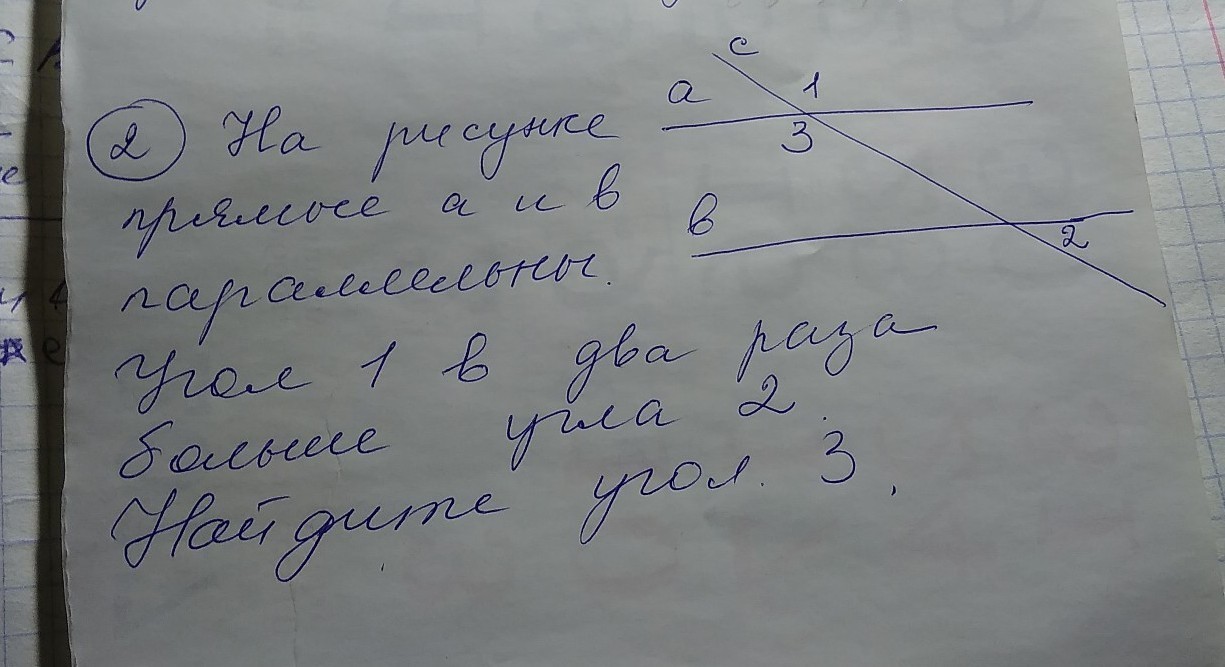 c
a 1
2 На рисунке
3
прямые а и в
в
2
параллельны.
Угол 1 в два раза
больше угла 2.
Найдите угол. 3.